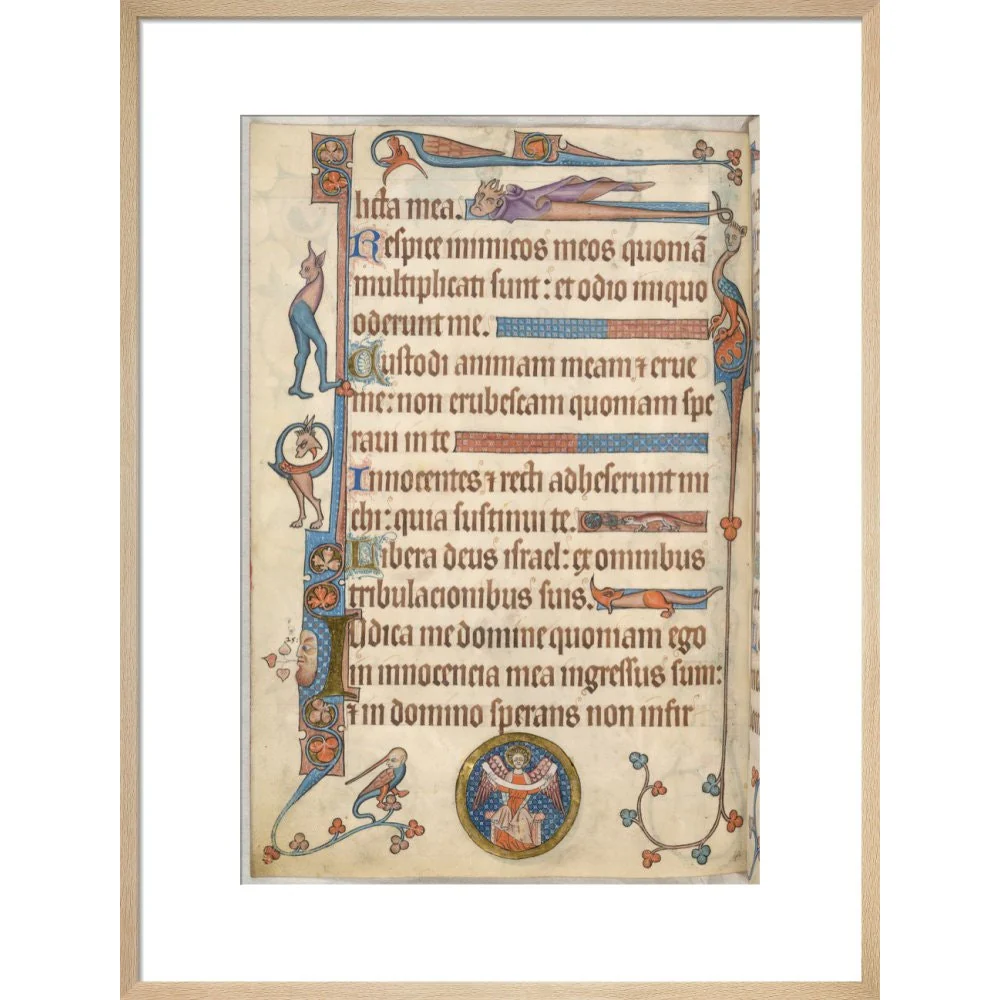 licta mea.
Respice inimicos meos quoniā
multiplicati sunt: et odio iniquo
oderunt me.
Custodi animam meam ⁊ erue
me: non erubescam quoniam spe
raui in te
Innocentes ⁊ recti adheserunt mi
chi: quia sustinui te.
Libera deus israel: ex omnibus
tribulacionibus suis.
IUdica me domine quoniam ego
in innocencia mea ingressus sum:
⁊ in domino sperans non infir